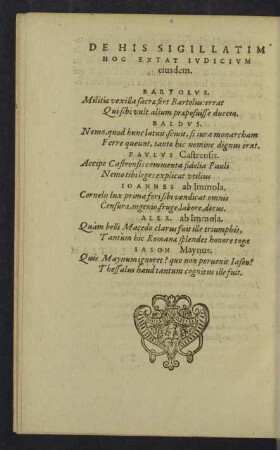 DE HIS SIGILLATIM
HOC EXTAT IVDICIVM
eiusdem.
BARTOLVS.
Militiæ vexilla sacræ fert Bartolus: errat
Qui sibi vult alium præposuisse ducem.
BALDVS.
Nemo, quod hunc latuit sciuit, si iura monarcham
Ferre queunt, tanto hic nomine dignus erat.
PAVLVS Castrensis.
Accipe Castrensis commenta fidelia Pauli
Nemo tibi leges explicat vtilius
IOANNES ab Immola.
Corneli lux prima fori sibi vendicat omnis
Censuræ, ingenio, fruge, labore, decus.
ALEX. ab Immola.
Quàm belli Macedo clarus fuit ille triumphis,
Tantum hic Romanæ splendet honore togæ
IASON Maynus.
Quis Maynum ignoret? quo non peruenit Iason?
Thessalus haud tantum cognitus ille fuit.